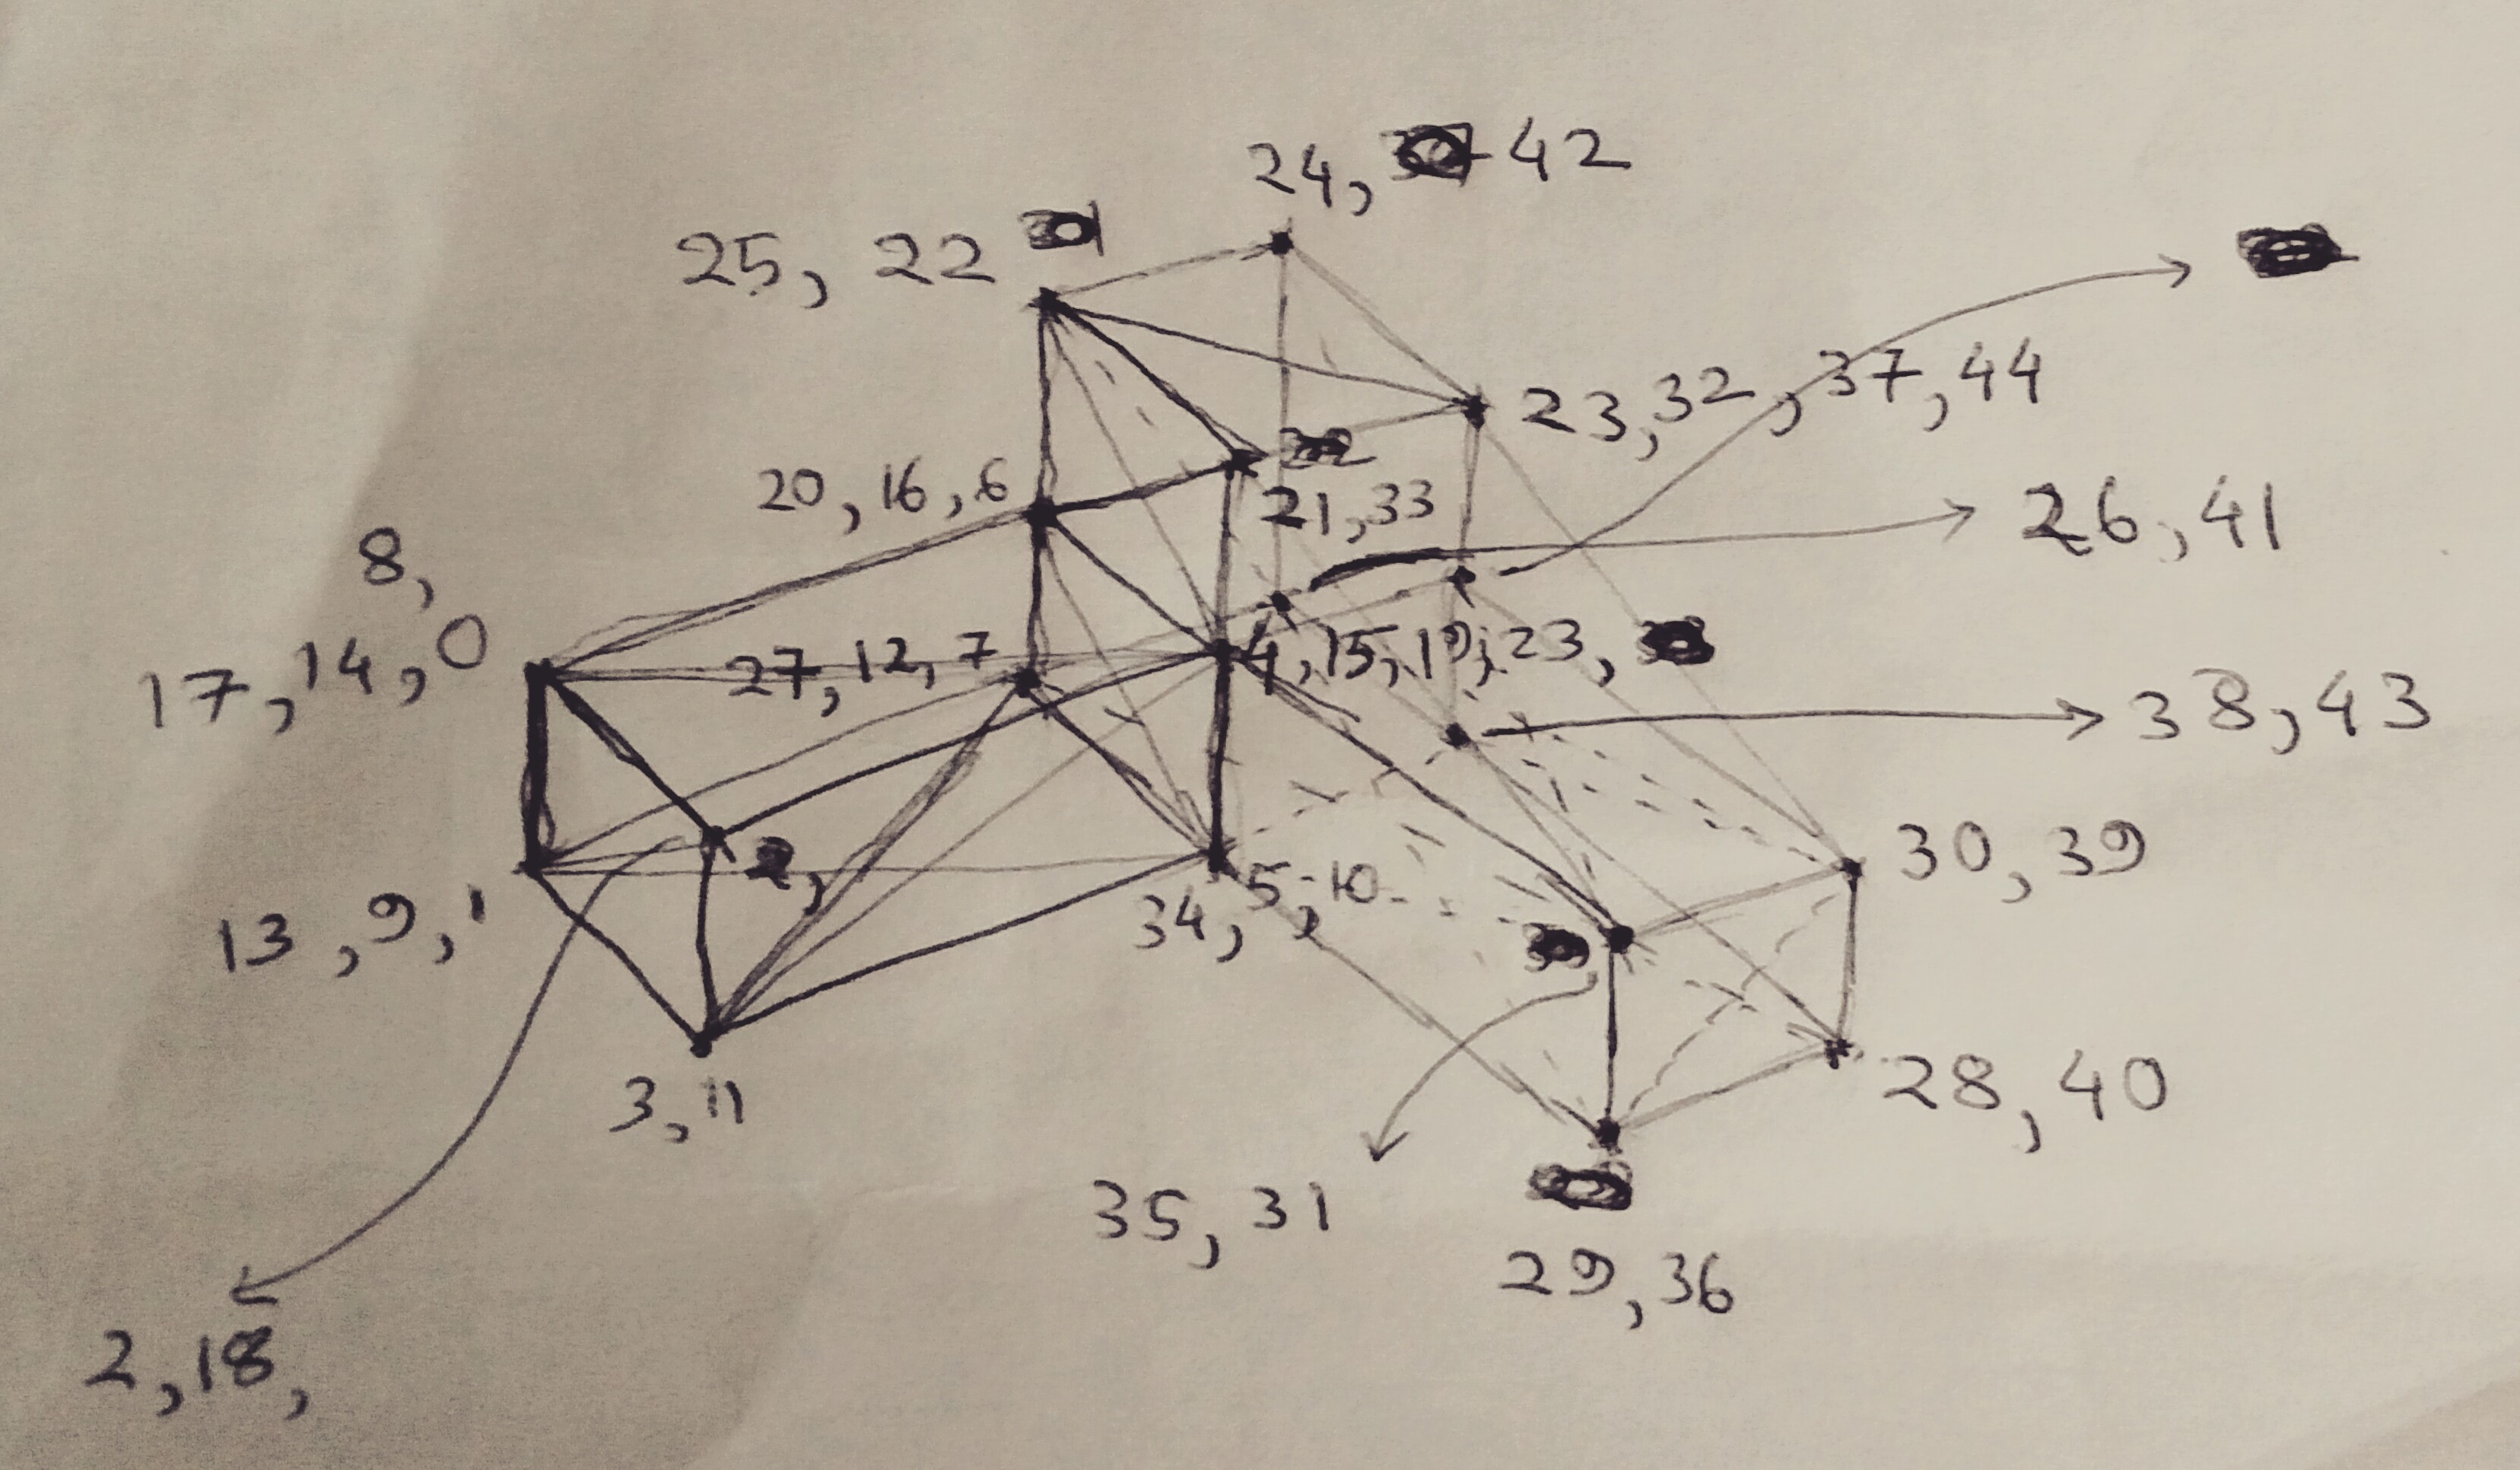 24, 42
25, 22
23, 32, 37, 44
20, 16, 6
21, 33
26, 41
8,
17, 14, 0
27, 12, 7
4, 15, 19, 23,
38, 43
2,
13, 9, 1
34, 5, 10
30, 39
3, 11
28, 40
35, 31
29, 36
2, 18,